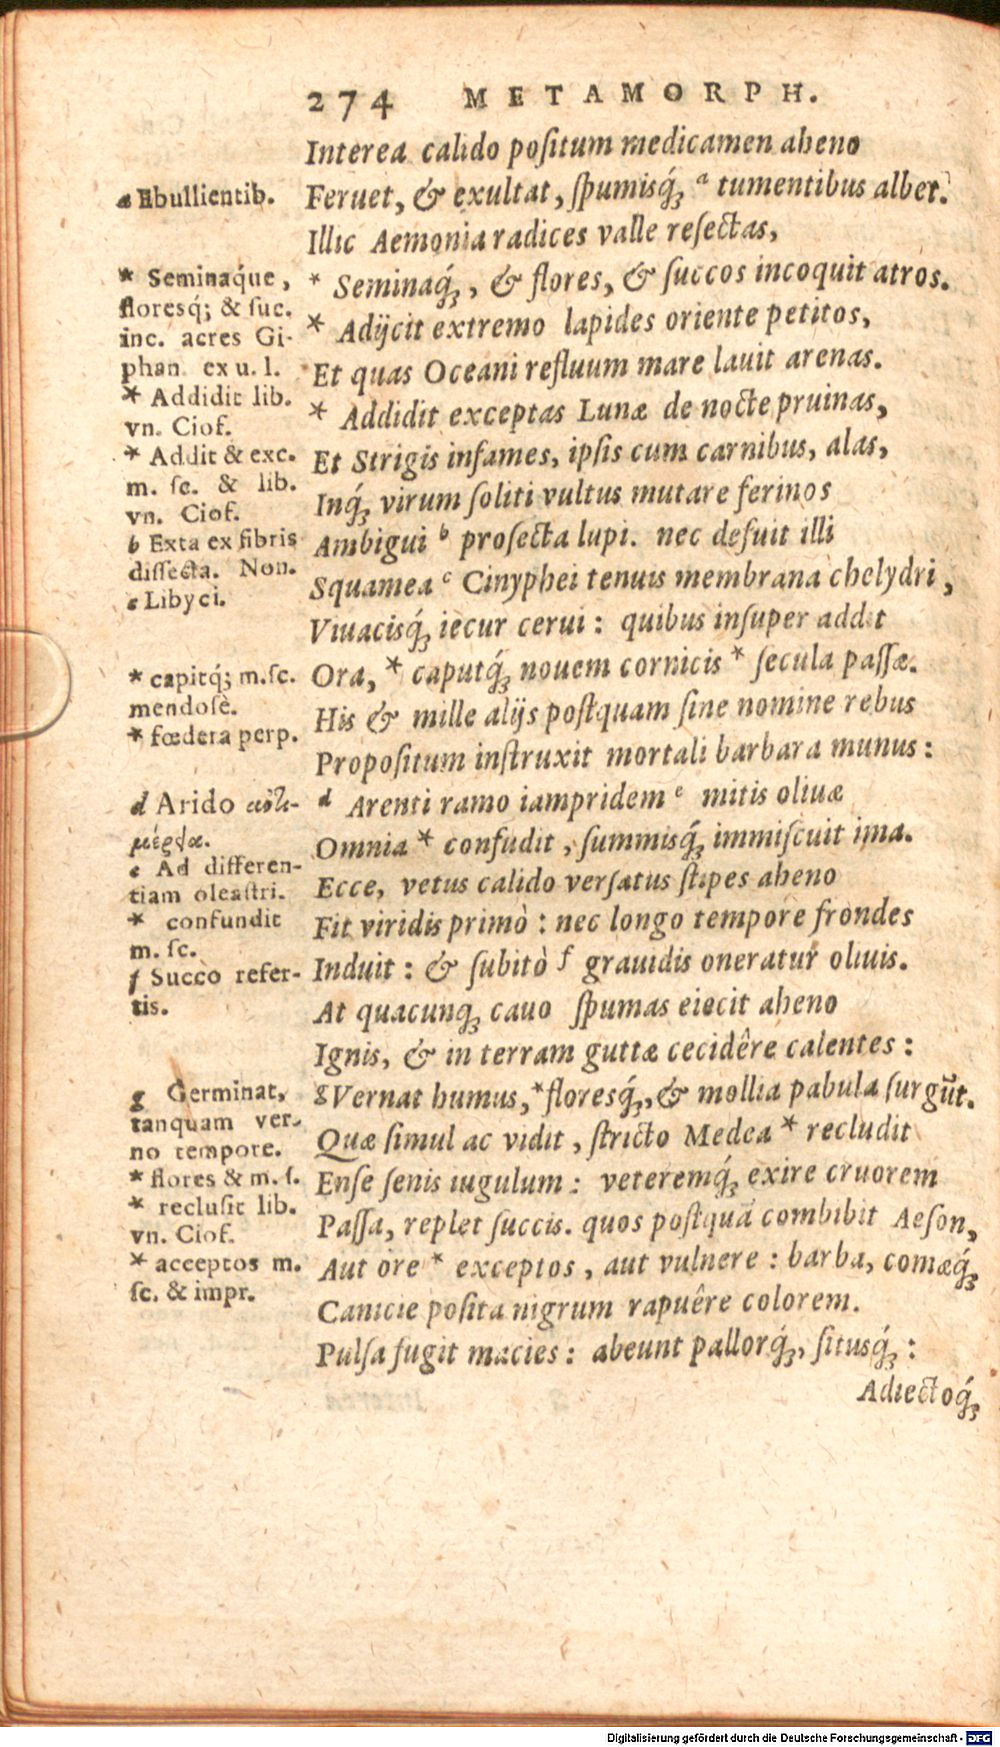 274 METAMORPH.
Interea calido poſitum medicamen aheno
Feruet, & exultat, ſpumisq́ꝫ ᵃ tumentibus albet.
Illic Aemonia radices valle reſectas,
* Seminaq́ꝫ, & flores, & ſuccos incoquit atros.
* Adijcit extremo lapides oriente petitos,
Et quas Oceani refluum mare lauit arenas.
* Addidit exceptas Lunæ de nocte pruinas,
Et Strigis infames, ipſis cum carnibus, alas,
Inq́ꝫ virum ſoliti vultus mutare ferinos
Ambigui ᵇ proſecta lupi. nec defuit illi
Squamea ᶜ Cinyphei tenuis membrana chelydri,
Viuacisq́ꝫ iecur cerui: quibus inſuper addit
Ora, * caputq́ꝫ nouem cornicis * ſecula paſſæ.
His & mille alijs poſtquam ſine nomine rebus
Propoſitum inſtruxit mortali barbara munus:
ᵈ Arenti ramo iampridem ᵉ mitis oliuæ
Omnia * confudit, ſummisq́ꝫ immiſcuit ima.
Ecce, vetus calido verſatus ſtipes aheno
Fit viridis primò: nec longo tempore frondes
Induit: & ſubitò ᶠ grauidis oneratur oliuis.
At quacunqꝫ cauo ſpumas eiecit aheno
Ignis, & in terram guttæ cecidêre calentes:
ᵍ Vernat humus, * floresq́ꝫ, & mollia pabula ſurgūt.
Quæ ſimul ac vidit, ſtricto Medea * recludit
Enſe ſenis iugulum: veteremq́ꝫ exire cruorem
Paſſa, replet ſuccis. quos poſtquā combibit Aeſon,
Aut ore * exceptos, aut vulnere: barba, comæq́ꝫ
Canicie poſita nigrum rapuêre colorem.
Pulſa fugit macies: abeunt pallorq́ꝫ, ſitusq́ꝫ:
Adiectoq́ꝫ
a Ebullientib.
* Seminaq́ue,
floresq́; & ſuc.
inc. acres Gi-
phan. ex u. l.
* Addidit lib.
vn. Cioſ.
* Addit & exc.
m. ſc. & lib.
vn. Cioſ.
b Exta ex fibris
diſſecta. Non.
c Libyci.
* capitq́; m.ſc.
mendoſè.
* fœdera perp.
d Arido
e Ad differen-
tiam oleaſtri.
* confundit
m. ſc.
f Succo refer-
tis.
g Germinat,
tanquam ver-
no tempore.
* flores & m. ſ.
* recluſit lib.
vn. Cioſ.
* acceptos m.
ſc. & impr.
Digitalisierung gefördert durch die Deutsche Forschungsgemeinschaft - DFG